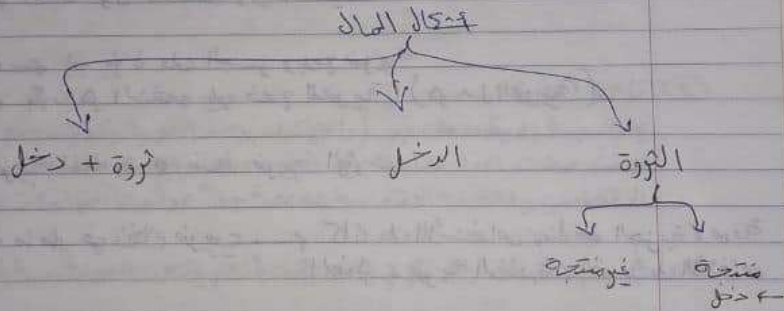 أشكال المال
الثروة    الدخل    ثروة + دخل
منتجة    غير منتجة
← دخل